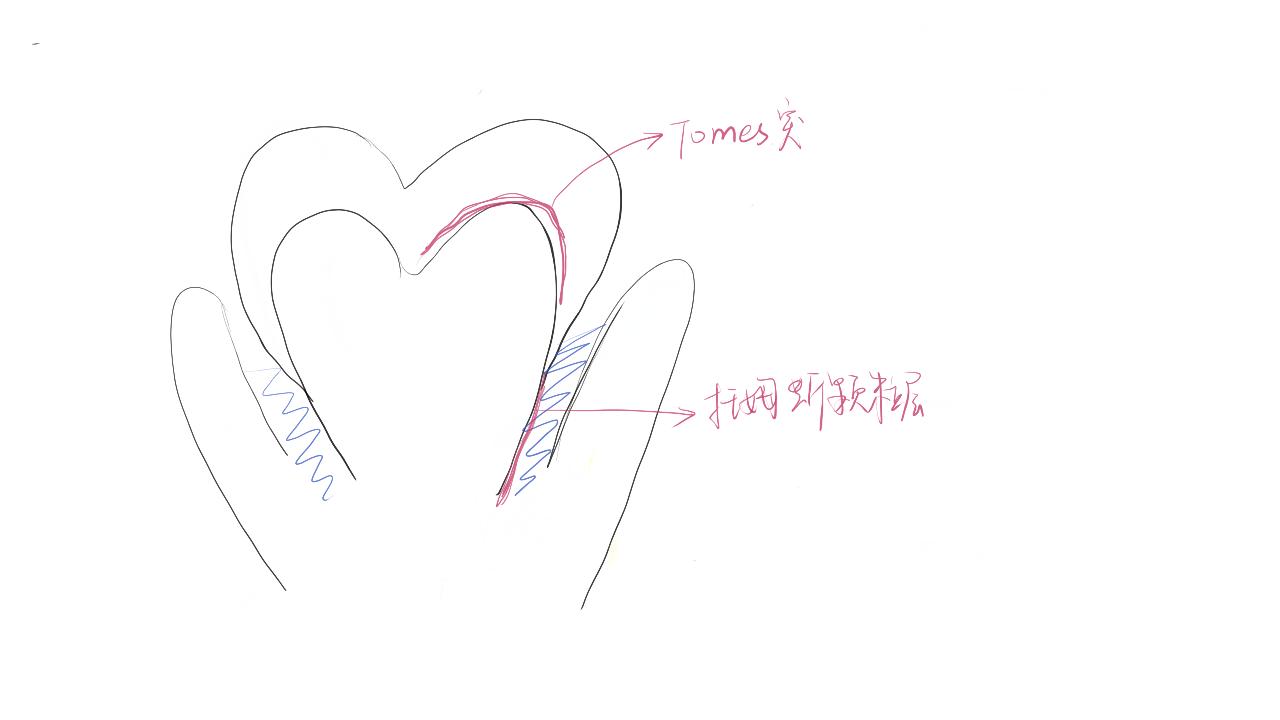 Tomes突
托姆斯颗粒层